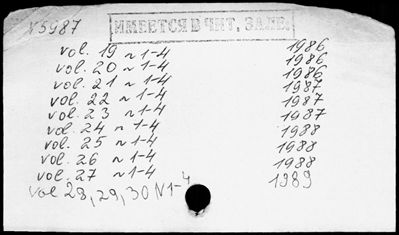 V5987
ИМЕЕТСЯ В ЧИТ. ЗАЛЕ.
vol. 19 N 1-4 1986
vol. 20 N 1-4 1986
vol. 21 N 1-4 1986
vol. 22 N 1-4 1987
vol. 23 N 1-4 1987
vol. 24 N 1-4 1987
vol. 25 N 1-4 1988
vol. 26 N 1-4 1988
vol. 27 N 1-4 1988
vol 28, 29, 30 N 1-4 1989